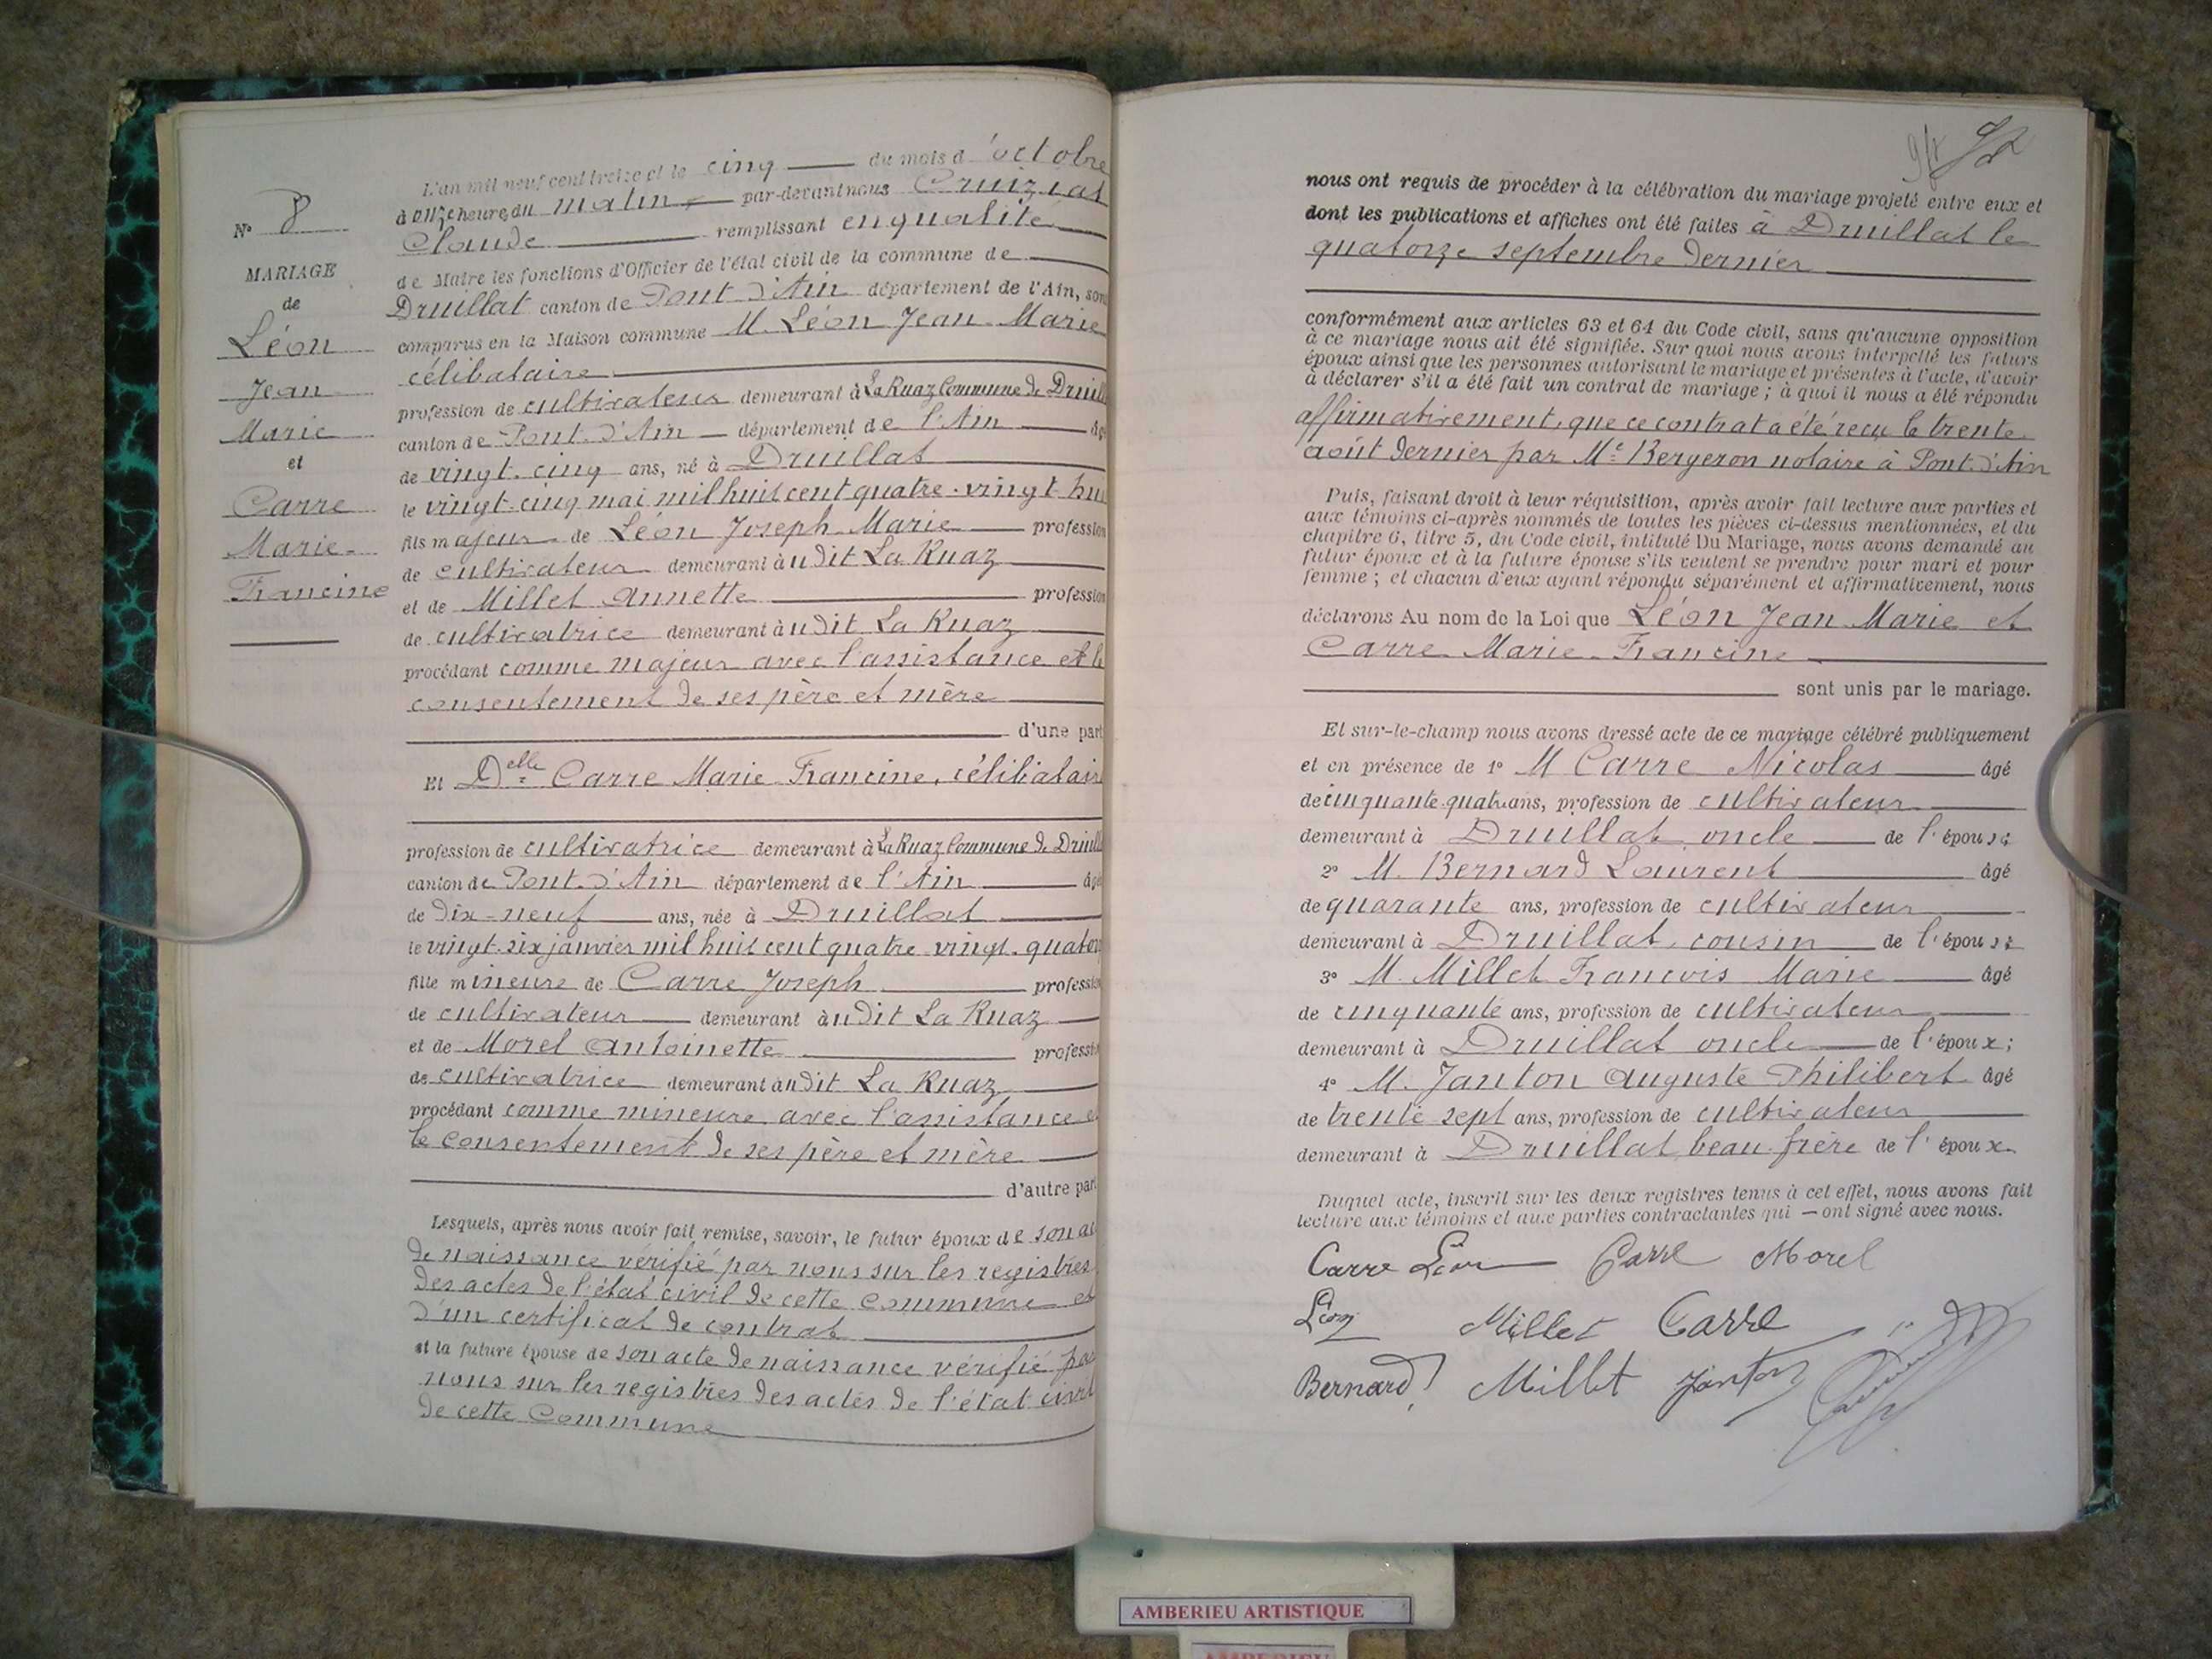 N° 8
MARIAGE
de
Léon
Jean
Marie
et
Carre
Marie-
Francine
L'an mil neuf cent treize et le cinq du mois d'octobre
à onze heures du matin par-devant nous Cruiziat
Claude remplissant en qualité
de Maire les fonctions d'Officier de l'état civil de la commune de
Druillat canton de Pont d'Ain département de l'Ain, son
comparus en la Maison commune M. Léon Jean-Marie
célibataire
profession de cultivateur demeurant à La Ruaz Commune de Druill
canton de Pont-d'Ain département de l'Ain âgé
de vingt-cinq ans, né à Druillat
le vingt-cinq mai mil huit cent quatre-vingt hui
fils majeur de Léon Joseph-Marie profession
de cultivateur demeurant à udit La Ruaz
et de Millet Annette profession
de cultivatrice demeurant à udit La Ruaz
procédant comme majeur avec l'assistance et le
consentement de ses père et mère
d'une part
Et Delle Carre Marie-Francine, célibataire
profession de cultivatrice demeurant à La Ruaz Commune de Druill
canton de Pont-d'Ain département de l'Ain âgé
de dix-neuf ans, née à Druillat
le vingt-six janvier mil huit cent quatre-vingt-quator
fille mineure de Carre Joseph profession
de cultivateur demeurant à udit La Ruaz
et de Morel Antoinette professi
de cultivatrice demeurant à udit La Ruaz
procédant comme mineure avec l'assistance e
le consentement de ses père et mère
d'autre part
Lesquels, après nous avoir fait remise, savoir, le futur époux de son ac
de naissance vérifié par nous sur les registres
des actes de l'état civil de cette Commune et
d'un certificat de contrat
et la future épouse de son acte de naissance vérifié par
nous sur les registres des actes de l'état civil
de cette Commune
nous ont requis de procéder à la célébration du mariage projeté entre eux et
dont les publications et affiches ont été faites à Druillat le
quatorze septembre dernier
conformément aux articles 63 et 64 du Code civil, sans qu'aucune opposition
à ce mariage nous ait été signifiée. Sur quoi nous avons interpellé les futurs
époux ainsi que les personnes autorisant le mariage et présentes à l'acte, d'avoir
à déclarer s'il a été fait un contrat de mariage ; à quoi il nous a été répondu
affirmativement, que ce contrat a été reçu le trente
août dernier par Me Bergeron notaire à Pont-d'Ain
Puis, faisant droit à leur réquisition, après avoir fait lecture aux parties et
aux témoins ci-après nommés de toutes les pièces ci-dessus mentionnées, et du
chapitre 6, titre 5, du Code civil, intitulé Du Mariage, nous avons demandé au
futur époux et à la future épouse s'ils veulent se prendre pour mari et pour
femme ; et chacun d'eux ayant répondu séparément et affirmativement, nous
déclarons Au nom de la Loi que Léon Jean-Marie et
Carre Marie-Francine
sont unis par le mariage.
Et sur-le-champ nous avons dressé acte de ce mariage célébré publiquement
et en présence de 1° M Carre Nicolas âgé
de cinquante-quatre ans, profession de cultivateur
demeurant à Druillat oncle de l'épouse
2° M. Bernard Laurent âgé
de quarante ans, profession de cultivateur
demeurant à Druillat, cousin de l'épouse
3° M. Millet François Marie âgé
de cinquante ans, profession de cultivateur
demeurant à Druillat oncle de l'époux;
4° M. Janton Auguste Philibert âgé
de trente sept ans, profession de cultivateur
demeurant à Druillat beau-frère de l'époux
Duquel acte, inscrit sur les deux registres tenus à cet effet, nous avons fait
lecture aux témoins et aux parties contractantes qui — ont signé avec nous.
Carre Léon Carre Morel
Léon Millet Carre
Bernard Millet Janton
AMBERIEU ARTISTIQUE
AMBERIEU